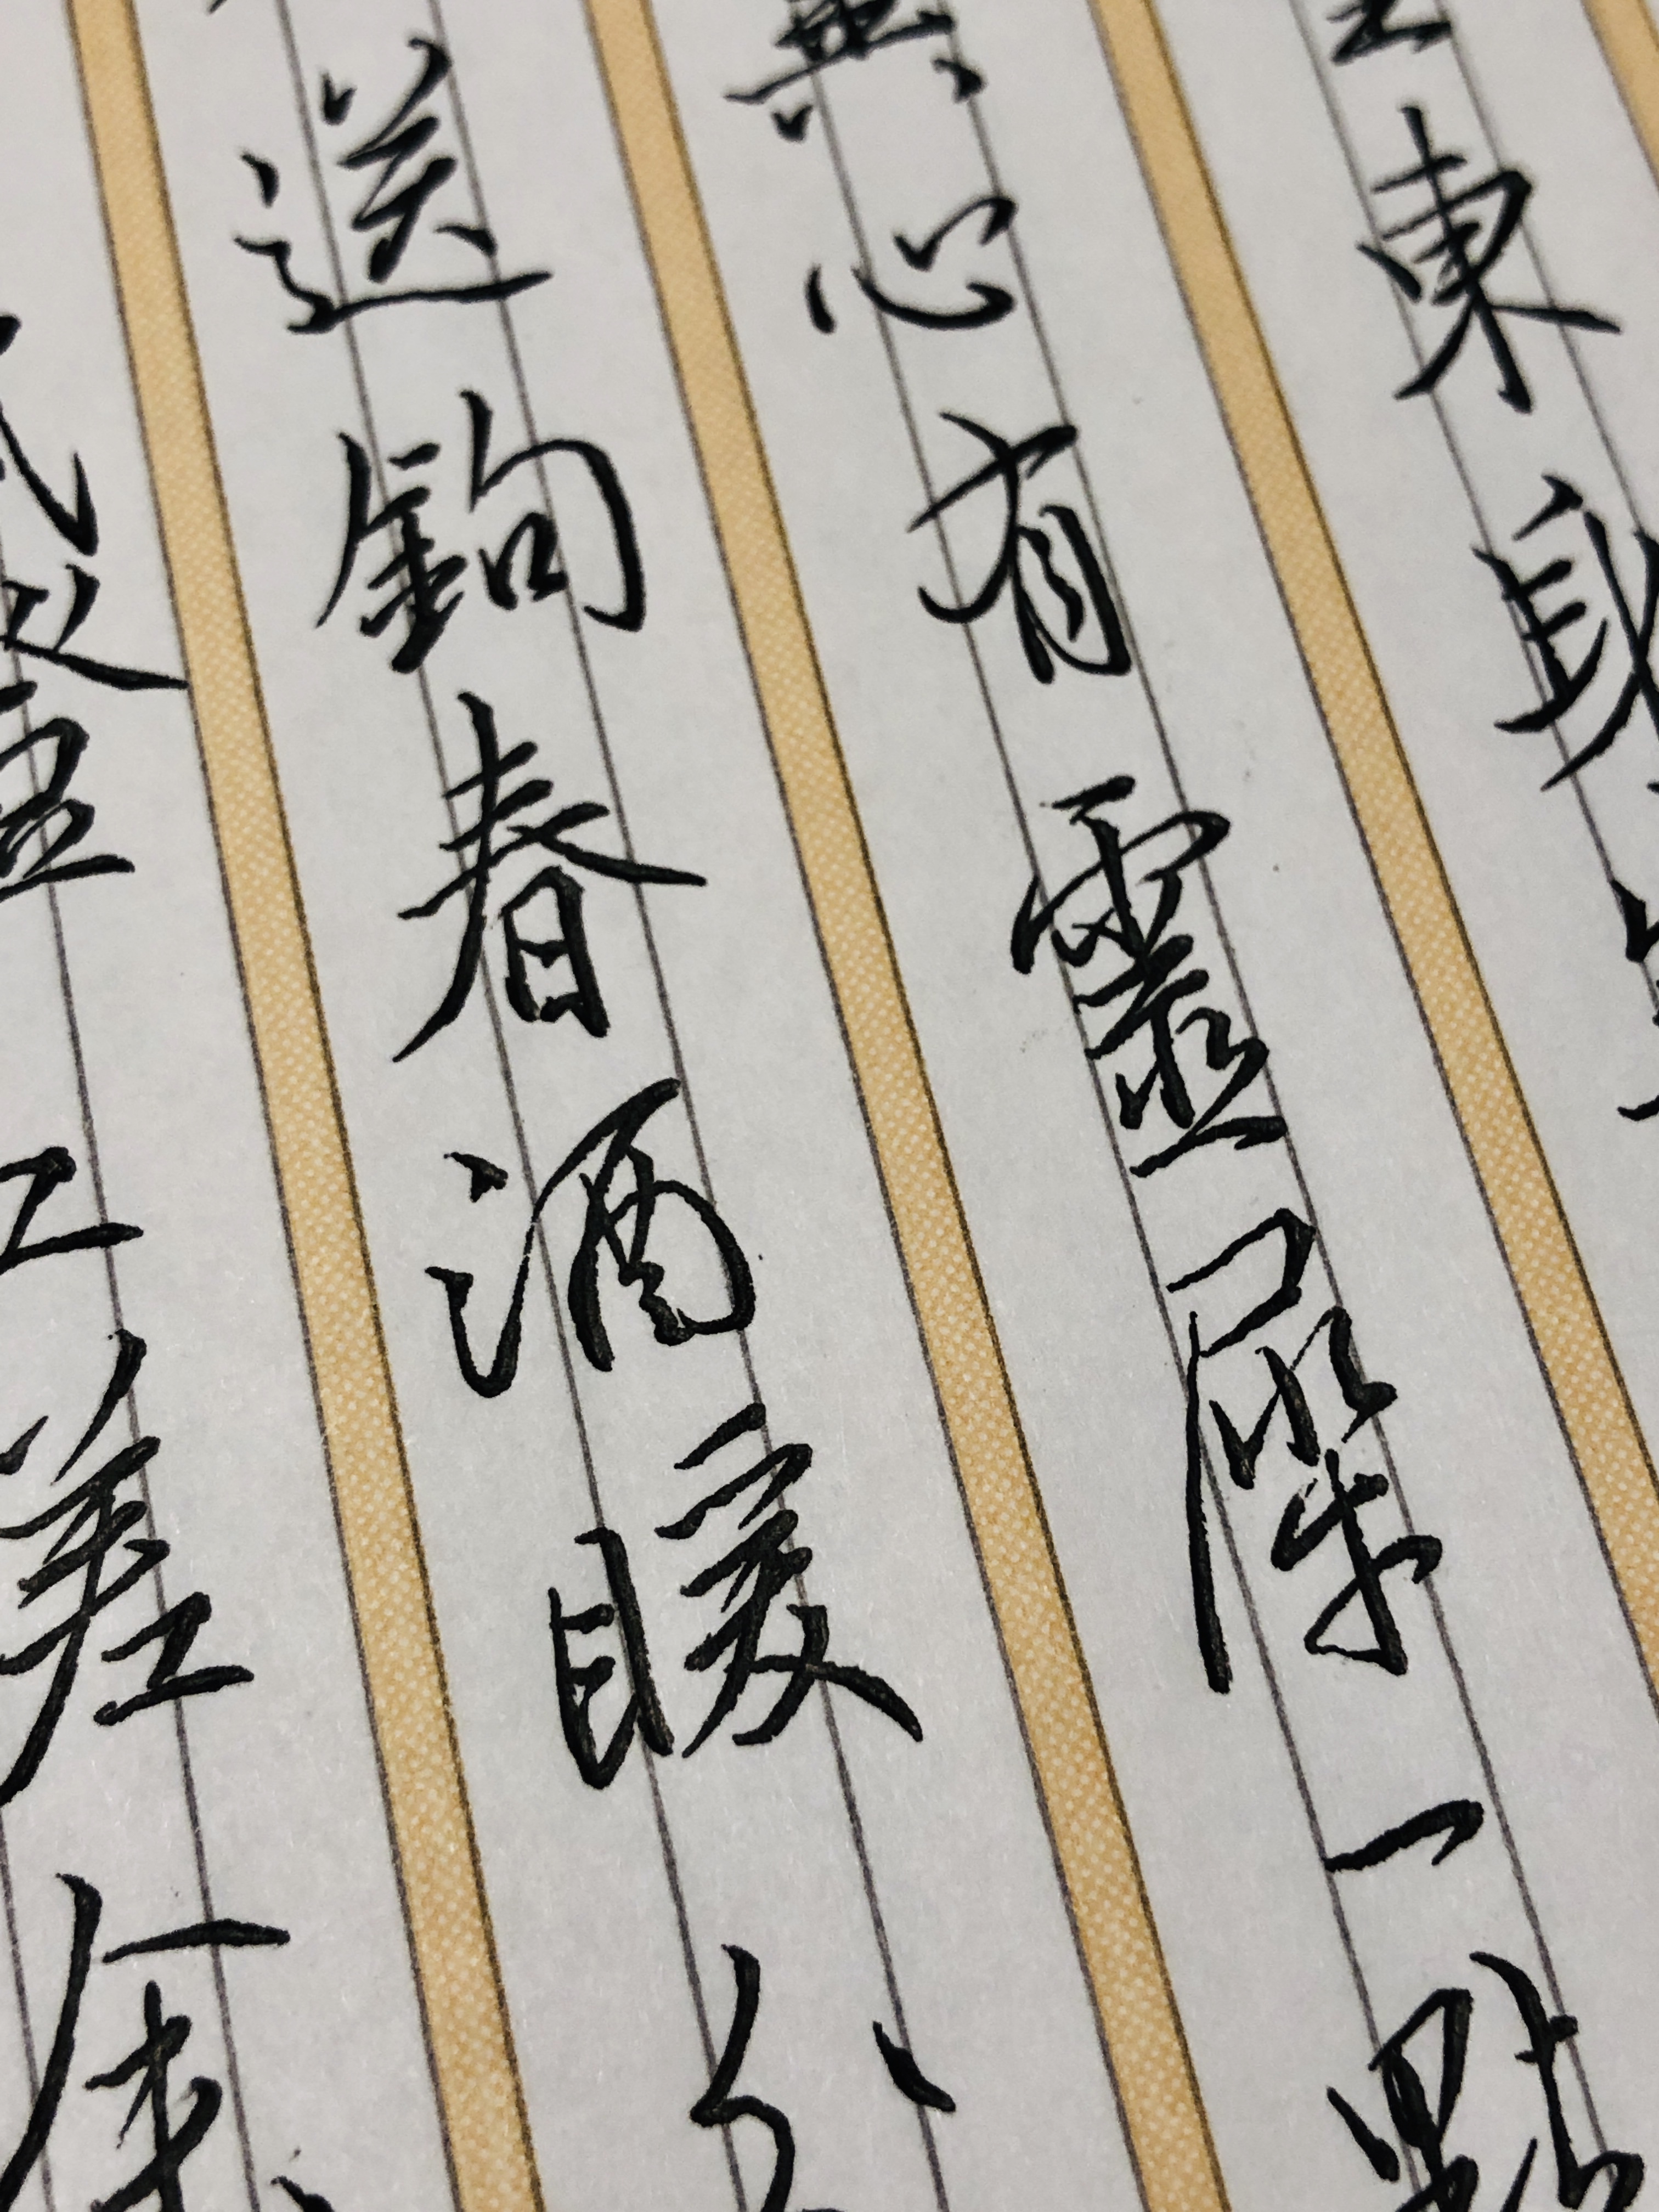 東身
心有靈犀一點
送鉤春酒暖分